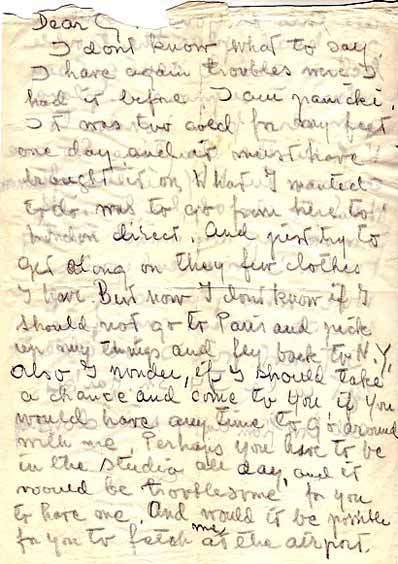 Dear G.
I dont know what to say
I have again troubles were I
had it before. I am panicki.
It was two cold for my feet
one day and it must have
brought it on, What I wanted
to do was to go from here to
London direct. And just try to
get along on they few clothes
I have. But now I dont know if I
should not go to Paris and pick
up my things and fly back to N.Y.
Also I wonder, if I should take
a chance and come to you if you
would have any time to go around
with me. Perhaps you have to be
in the studio all day, and it
would be troublesome for you
to have me. And would it be possible
for you to fetch me at the airport.